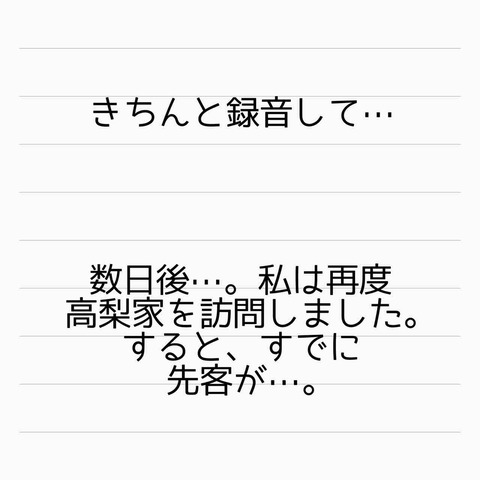 きちんと録音して…
数日後…。私は再度
高梨家を訪問しました。
すると、すでに
先客が…。